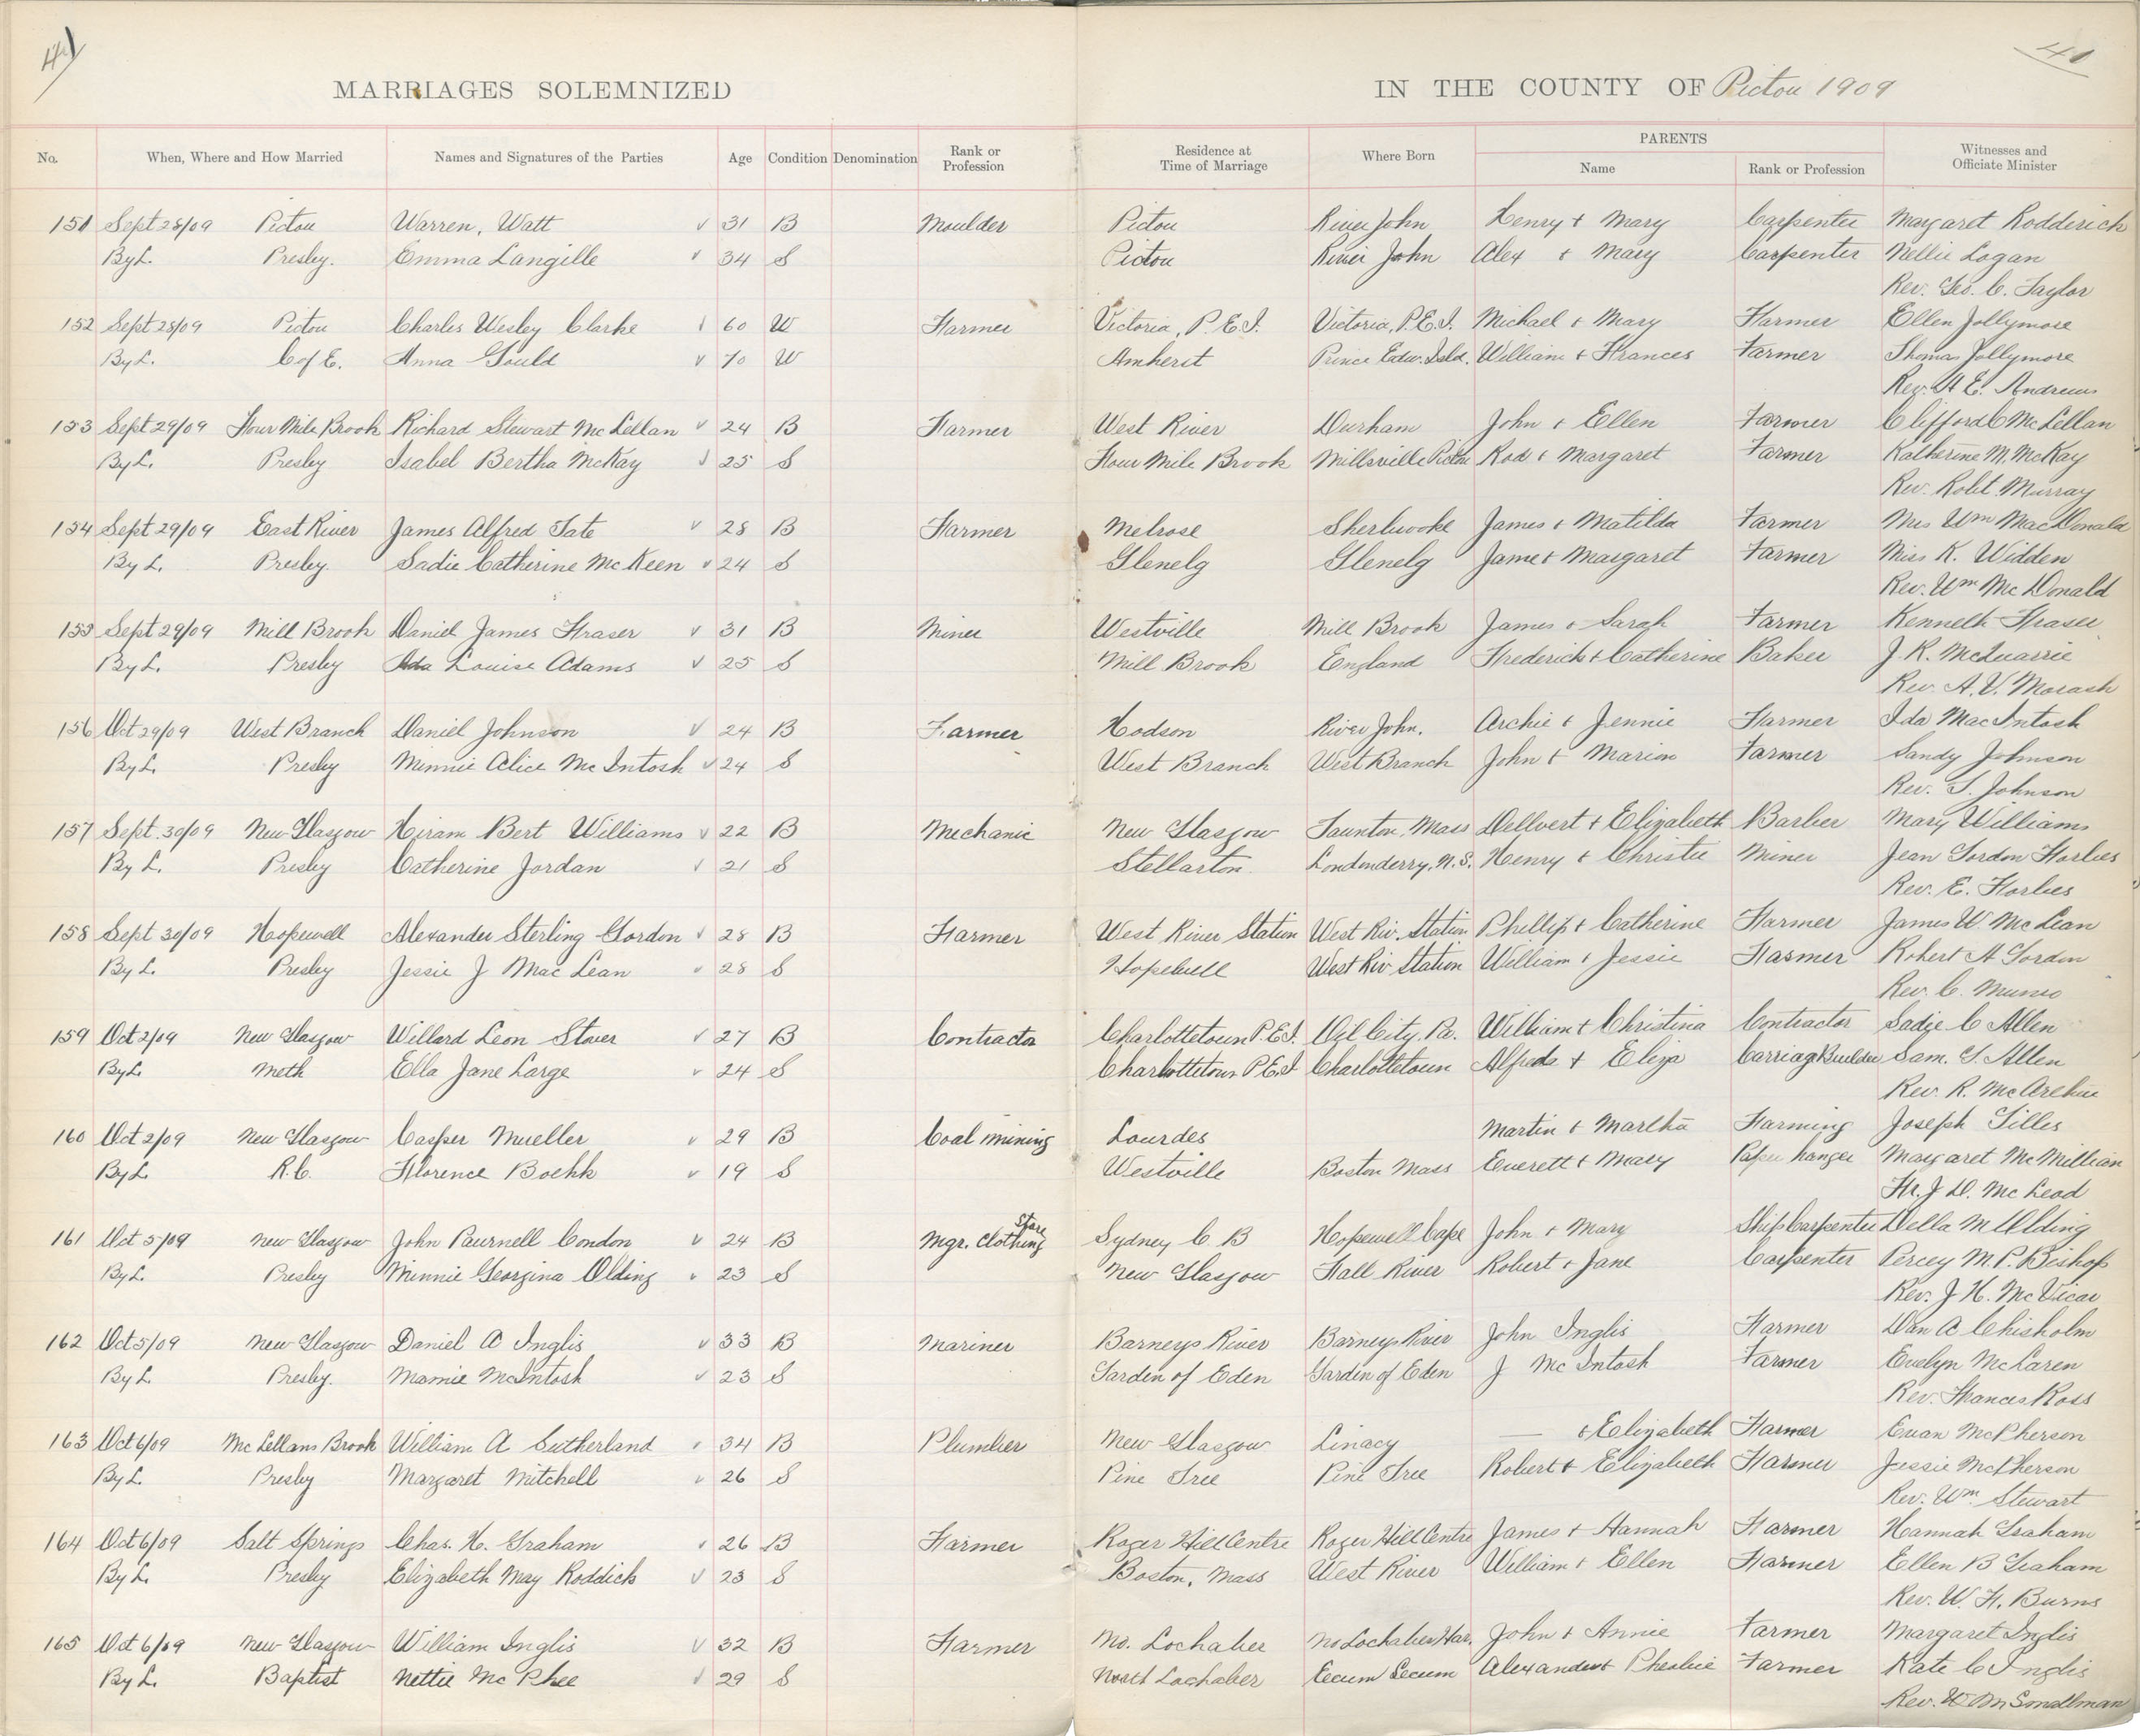 41 41
MARRIAGES SOLEMNIZED IN THE COUNTY OF Pictou 1909
No. When, Where and How Married Names and Signatures of the Parties Age Condition Denomination Rank or Profession Residence at Time of Marriage Where Born PARENTS Name Rank or Profession Witnesses and Officiate Minister
151 Sept 28/09 Pictou Warren, Watt 31 B Moulder Pictou River John Henry + Mary Carpenter Margaret Rodderick
By L. Presby. Emma Langille 34 S Pictou River John Alex + Mary Carpenter Nellie Logan
Rev. Geo. C. Taylor
152 Sept 28/09 Pictou Charles Wesley Clarke 60 W Farmer Victoria, P.E.I. Victoria, P.E.I. Michael + Mary Farmer Ellen Jollymore
By L. C of E. Anna Gould 70 W Amherst Prince Edw. Isld. William + Frances Farmer Thomas Jollymore
Rev. H E. Andrews
153 Sept 29/09 Four Mile Brook Richard Stewart McLellan 24 B Farmer West River Durham John + Ellen Farmer Clifford C McLellan
By L. Presby Isabel Bertha McKay 25 S Four Mile Brook Millsville Pictou Rod + Margaret Farmer Katherine M. McKay
Rev. Robt. Murray
154 Sept 29/09 East River James Alfred Tate 28 B Farmer Melrose Sherbrooke James + Matilda Farmer Mrs Wm MacDonald
By L. Presby. Sadie Catherine McKeen 24 S Glenelg Glenelg James + Margaret Farmer Miss K. Widden
Rev. Wm McDonald
155 Sept 29/09 Mill Brook Daniel James Fraser 31 B Miner Westville Mill Brook James + Sarah Farmer Kenneth Fraser
By L. Presby Ida Louise Adams 25 S Mill Brook England Frederick + Catherine Baker J. R. McQuarrie
Rev. A. V. Morash
156 Oct 29/09 West Branch Daniel Johnson 24 B Farmer Hodson River John. Archie + Jennie Farmer Ida MacIntosh
By L. Presby Minnie Alice McIntosh 24 S West Branch West Branch John + Marion Farmer Sandy Johnson
Rev. S. Johnson
157 Sept. 30/09 New Glasgow Hiram Bert Williams 22 B Mechanic New Glasgow Taunton, Mass Dellvert + Elizabeth Barber Mary Williams
By L. Presby Catherine Jordan 21 S Stellarton. Londonderry, N.S. Henry + Christie Miner Jean Gordon Forbes
Rev. E. Forbes
158 Sept 30/09 Hopewell Alexander Sterling Gordon 28 B Farmer West River Station West Riv. Station Phillip + Catherine Farmer James W. McLean
By L. Presby Jessie J MacLean 28 S Hopewell West Riv Station William + Jessie Farmer Robert A Gordon
Rev. C. Munro
159 Oct 2/09 New Glasgow Willard Leon Stover 27 B Contractor Charlottetown P.E.I. Oil City, Pa. William + Christina Contractor Sadie C Allen
By L Meth Ella Jane Large 24 S Charlottetown P.E.I Charlottetown Alfred + Eliza Carriage Builder Sam. S. Allen
Rev. R. McArthur
160 Oct 2/09 New Glasgow Casper Mueller 29 B Coal mining Lourdes Martin + Martha Farming Joseph Gillis
By L R.C. Florence Boehk 19 S Westville Boston Mass Everett + Mary Paper hanger Margaret McMillian
Fr. J D. McLeod
161 Oct 5/09 New Glasgow John Paurnell Condon 24 B Mgr. Clothing Store Sydney C B Hopewell Cape John + Mary Ship Carpenter Della M Olding
By L. Presby Minnie Georgina Olding 23 S New Glasgow Fall River Robert + Jane Carpenter Percey M. P. Bishop
Rev. J H. McVicar
162 Oct 5/09 New Glasgow Daniel A Inglis 33 B Mariner Barneys River Barneys River John Inglis Farmer Dan A Chisholm
By L Presby. Mamie McIntosh 23 S Garden of Eden Garden of Eden J McIntosh Farmer Evelyn McLaren
Rev. Frances Ross
163 Oct 6/09 McLellans Brook William A Sutherland 34 B Plumber New Glasgow Linacy — + Elizabeth Farmer Euan McPherson
By L. Presby Margaret Mitchell 26 S Pine Tree Pine Tree Robert + Elizabeth Farmer Jessie McPherson
Rev. Wm. Stewart
164 Oct 6/09 Salt Springs Chas. H. Graham 26 B Farmer Roger Hill Centre Roger Hill Centre James + Hannah Farmer Hannah Graham
By L. Presby Elizabeth May Roddick 23 S Boston, Mass West River William + Ellen Farmer Ellen B Graham
Rev. W. F. Burns
165 Oct 6/09 New Glasgow William Inglis 32 B Farmer No. Lochaber No Lochaber Har. John + Annie Farmer Margaret Inglis
By L. Baptist Nettie McPhee 29 S North Lochaber Eecum Secum Alexander + Pheobie Farmer Kate C Inglis
Rev. W M Smallman